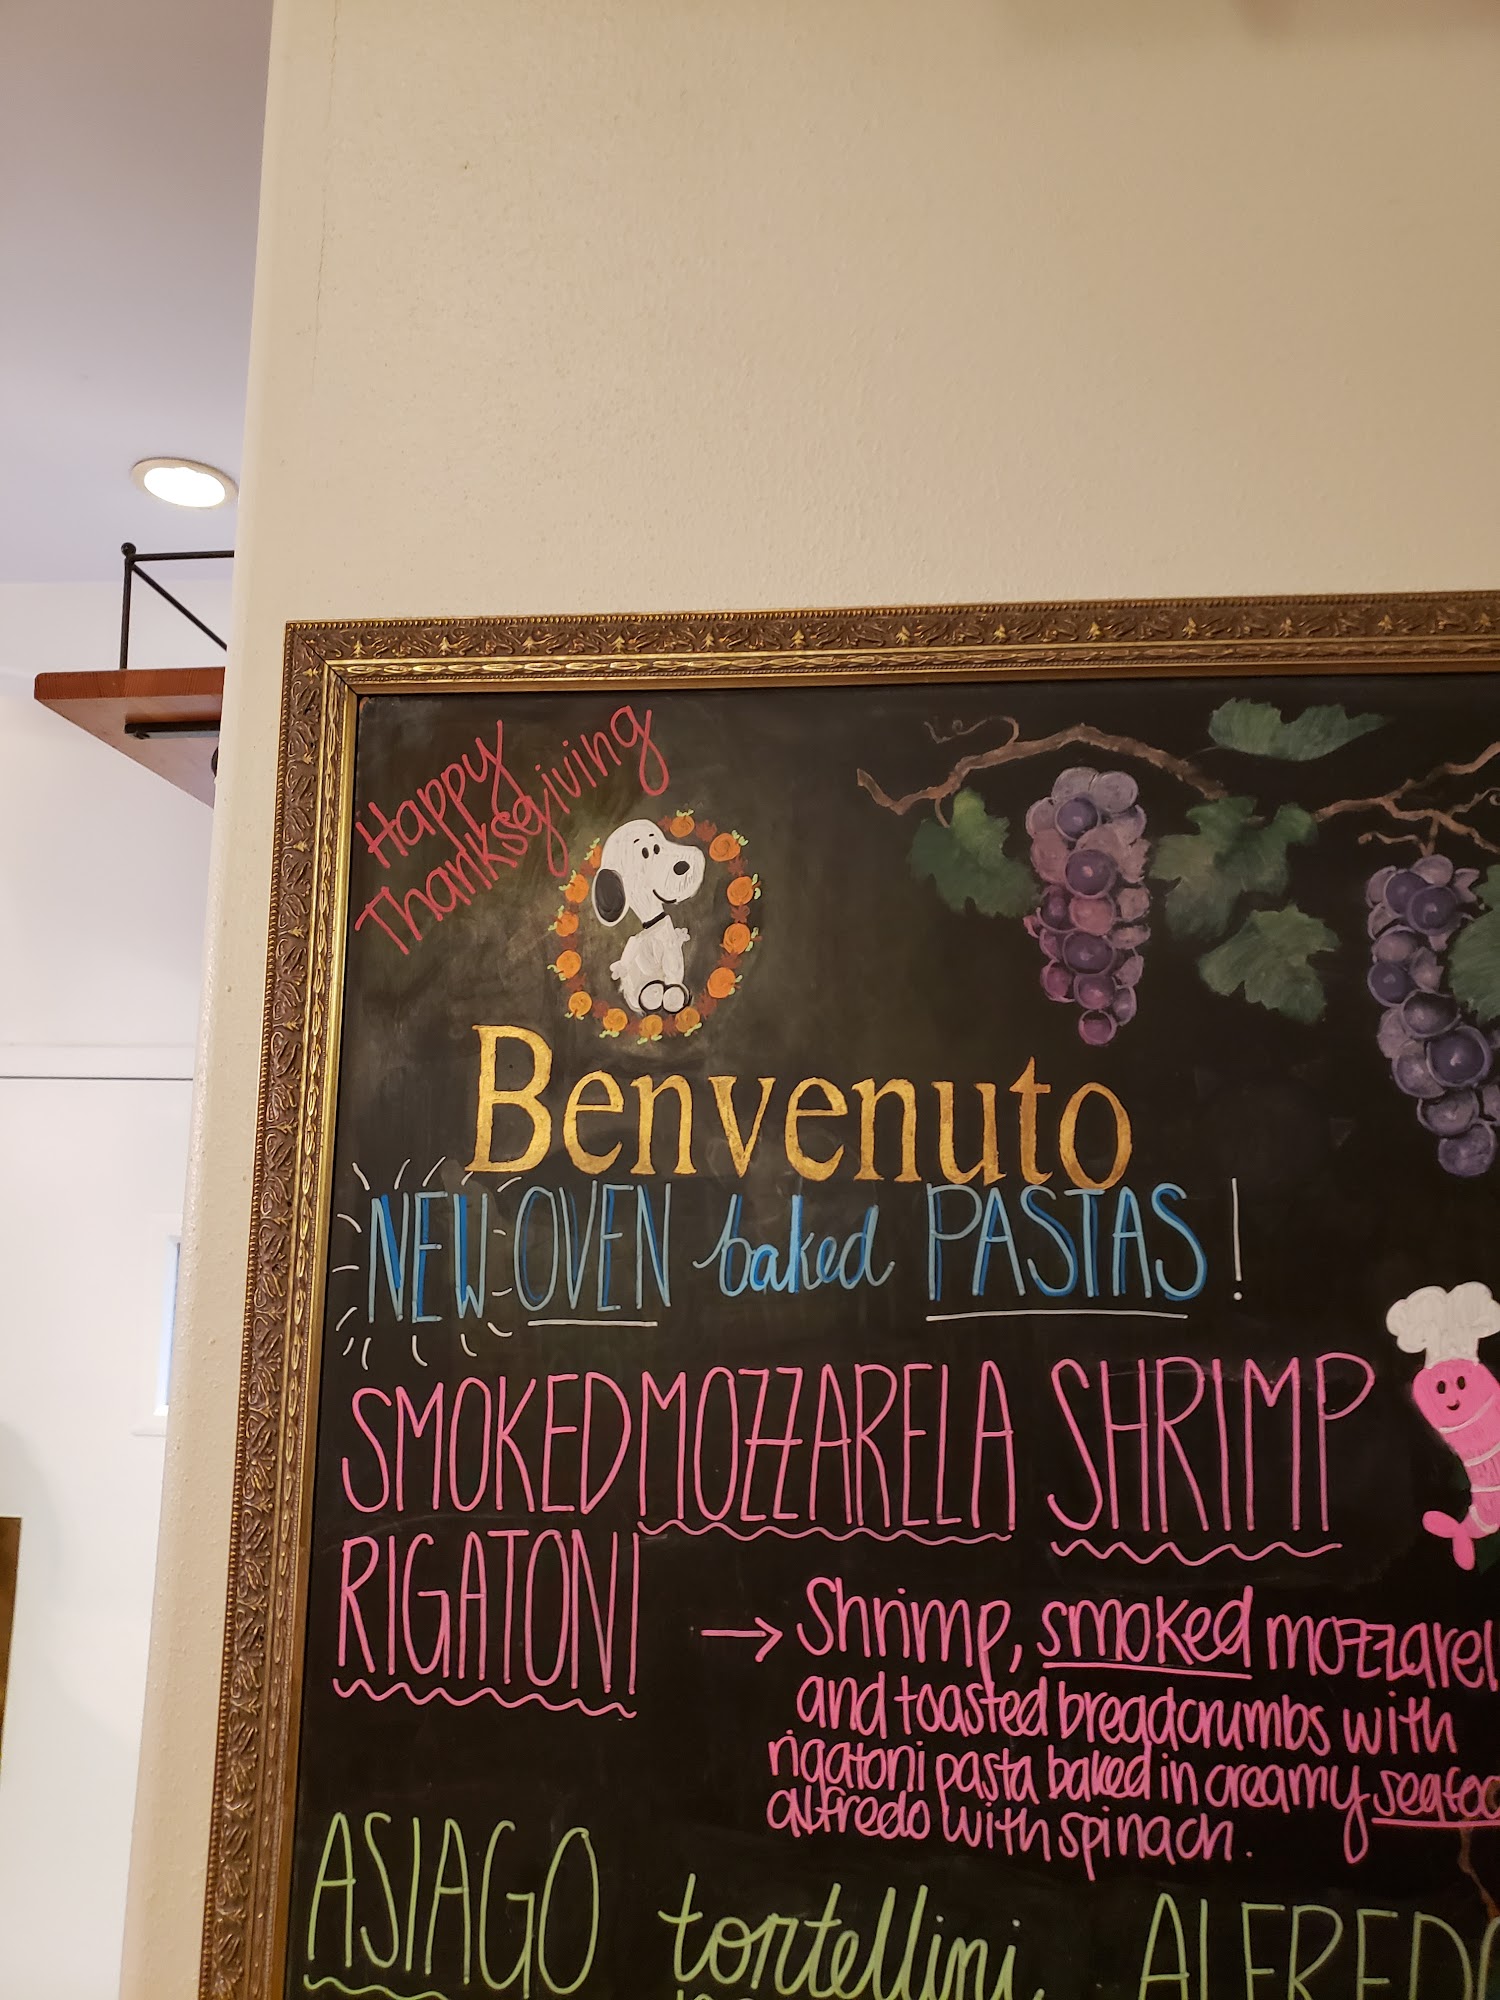 Happy
Thanksgiving
Benvenuto
NEW OVEN baked PASTAS!
SMOKED MOZZARELA SHRIMP
RIGATONI
→ Shrimp, smoked mozzarel
and toasted breadcrumbs with
rigatoni pasta baked in creamy seafoo
alfredo with spinach.
ASIAGO tortellini ALFREDO